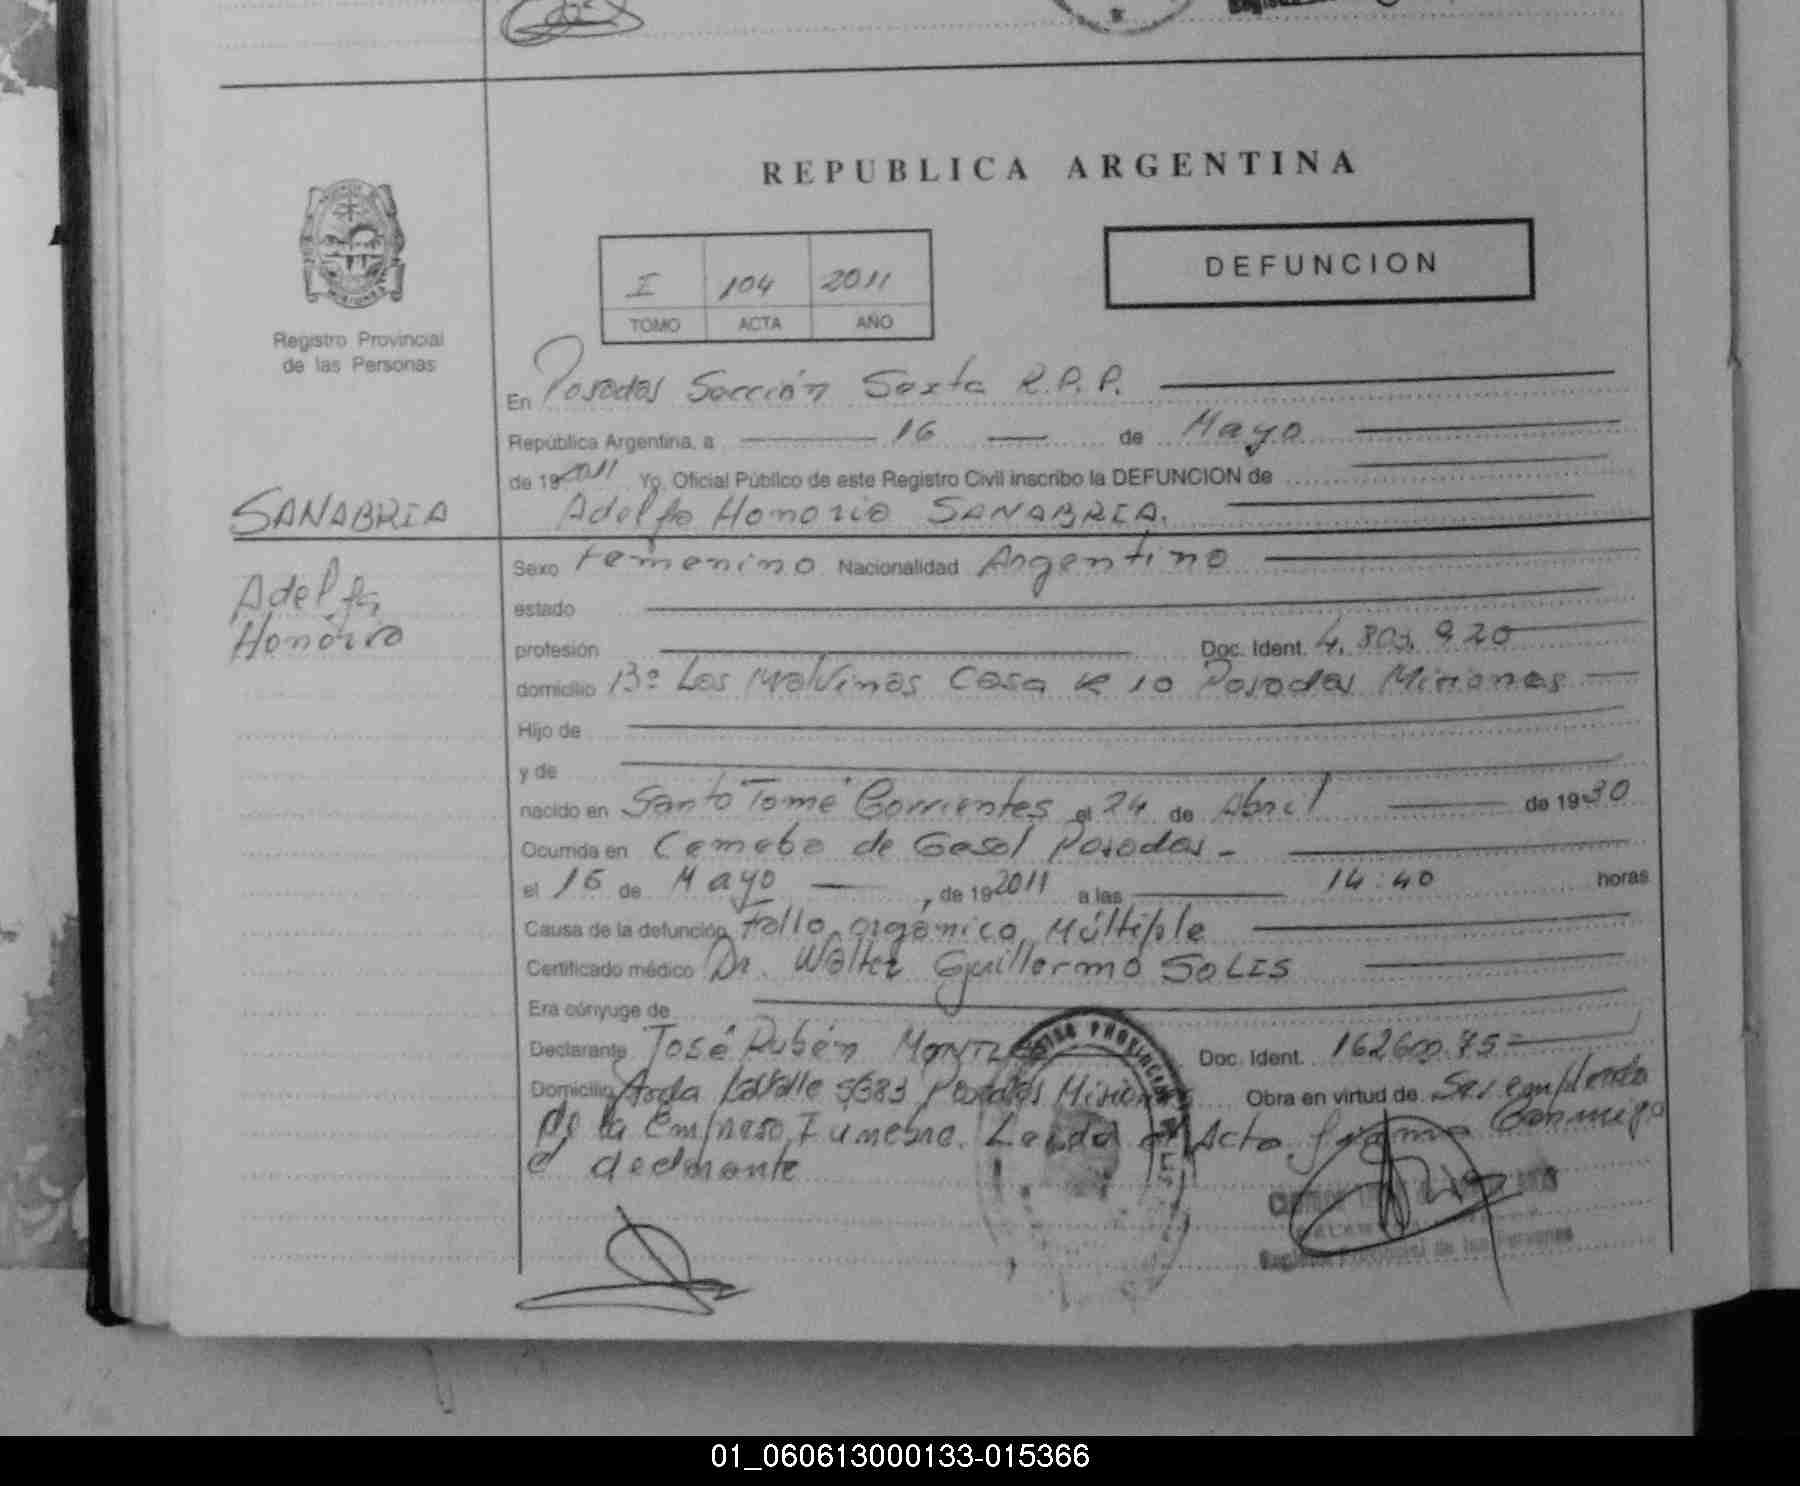 REPUBLICA ARGENTINA
DEFUNCION
I 104 2011
TOMO ACTA AÑO
Registro Provincial
de las Personas
En Posadas Sección Sexta R.P.P.
República Argentina, a 16 de Mayo
de 19 2011 Yo, Oficial Público de este Registro Civil inscribo la DEFUNCION de
SANABRIA
Adelfa Honoria SANABRIA.
Adelfa
Honoria
Sexo Femenino Nacionalidad Argentina
estado
profesión Doc. Ident. 4.803.920
domicilio B° Las Malvinas Casa K 10 Posadas Misiones
Hijo de
y de
nacido en Santo Tomé Corrientes el 24 de Abril de 1930
Ocurrida en Posadas-
el 15 de Mayo, de 19 2011 a las 14:40 horas
Causa de la defunción Fallo orgánico Múltiple
Certificado médico Dr. Walter Guillermo SOLIS
Era cónyuge de
Declarante José Rubén Doc. Ident. 16260075
Domicilio Avda Lavalle 5683 Posadas Misiones Obra en virtud de Ser empleado
de la Empresa Funebre. Leída el Acta firma Conmigo
el declarante
Registro Provincial de las Personas
01_060613000133-015366